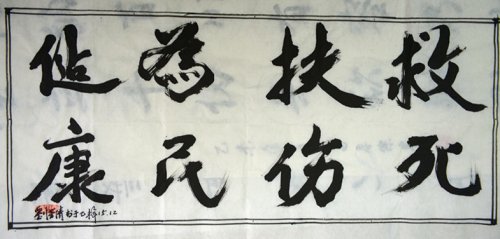 救死
扶伤
為民
康
15.12